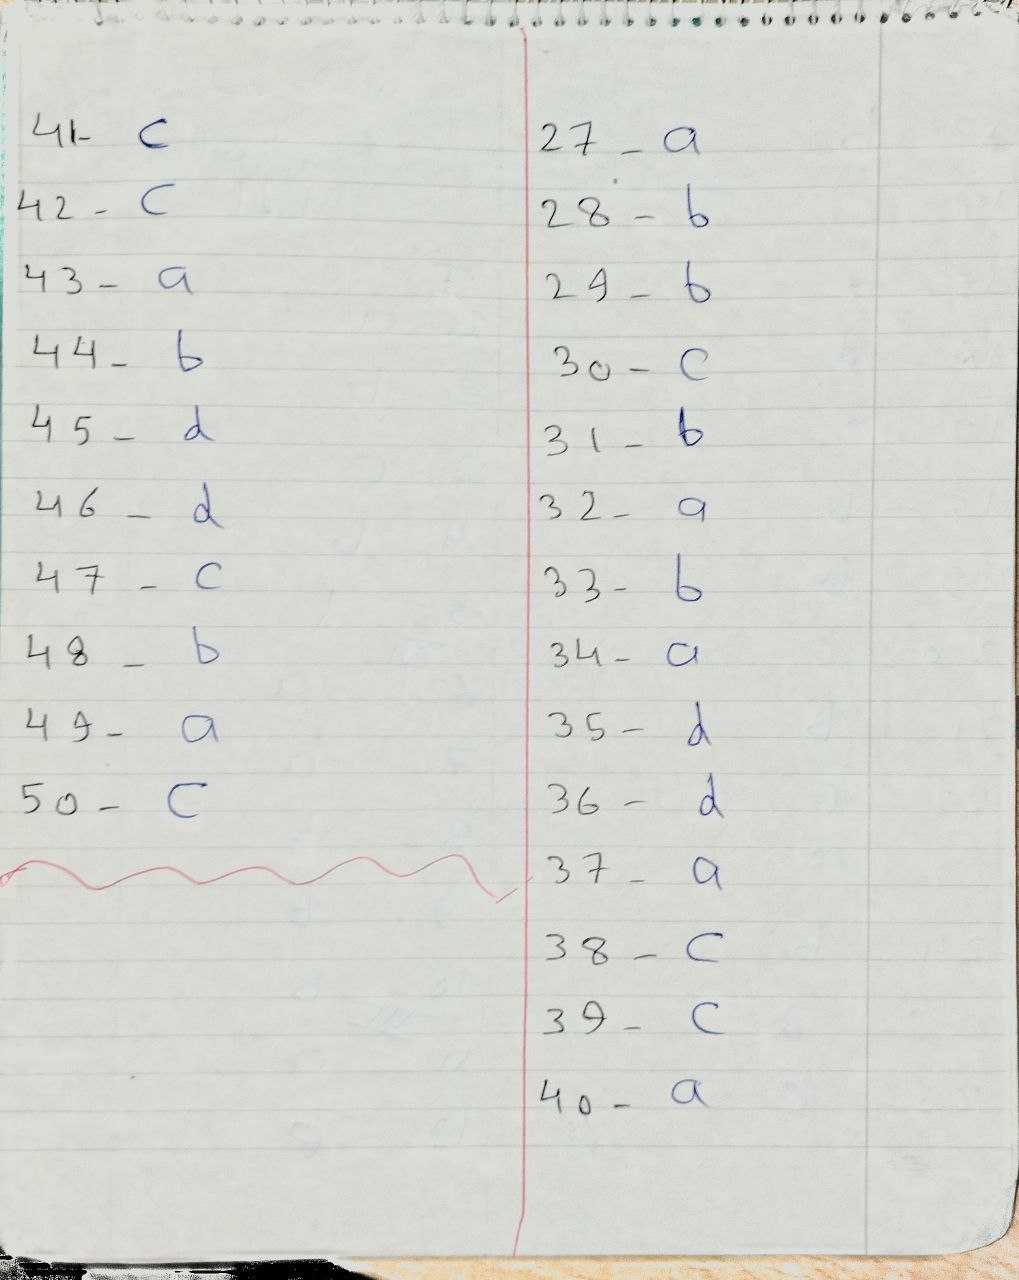 27 - a
28 - b
29 - b
30 - c
31 - b
32 - a
33 - b
34 - a
35 - d
36 - d
37 - a
38 - c
39 - c
40 - a
41 - c
42 - c
43 - a
44 - b
45 - d
46 - d
47 - c
48 - b
49 - a
50 - c